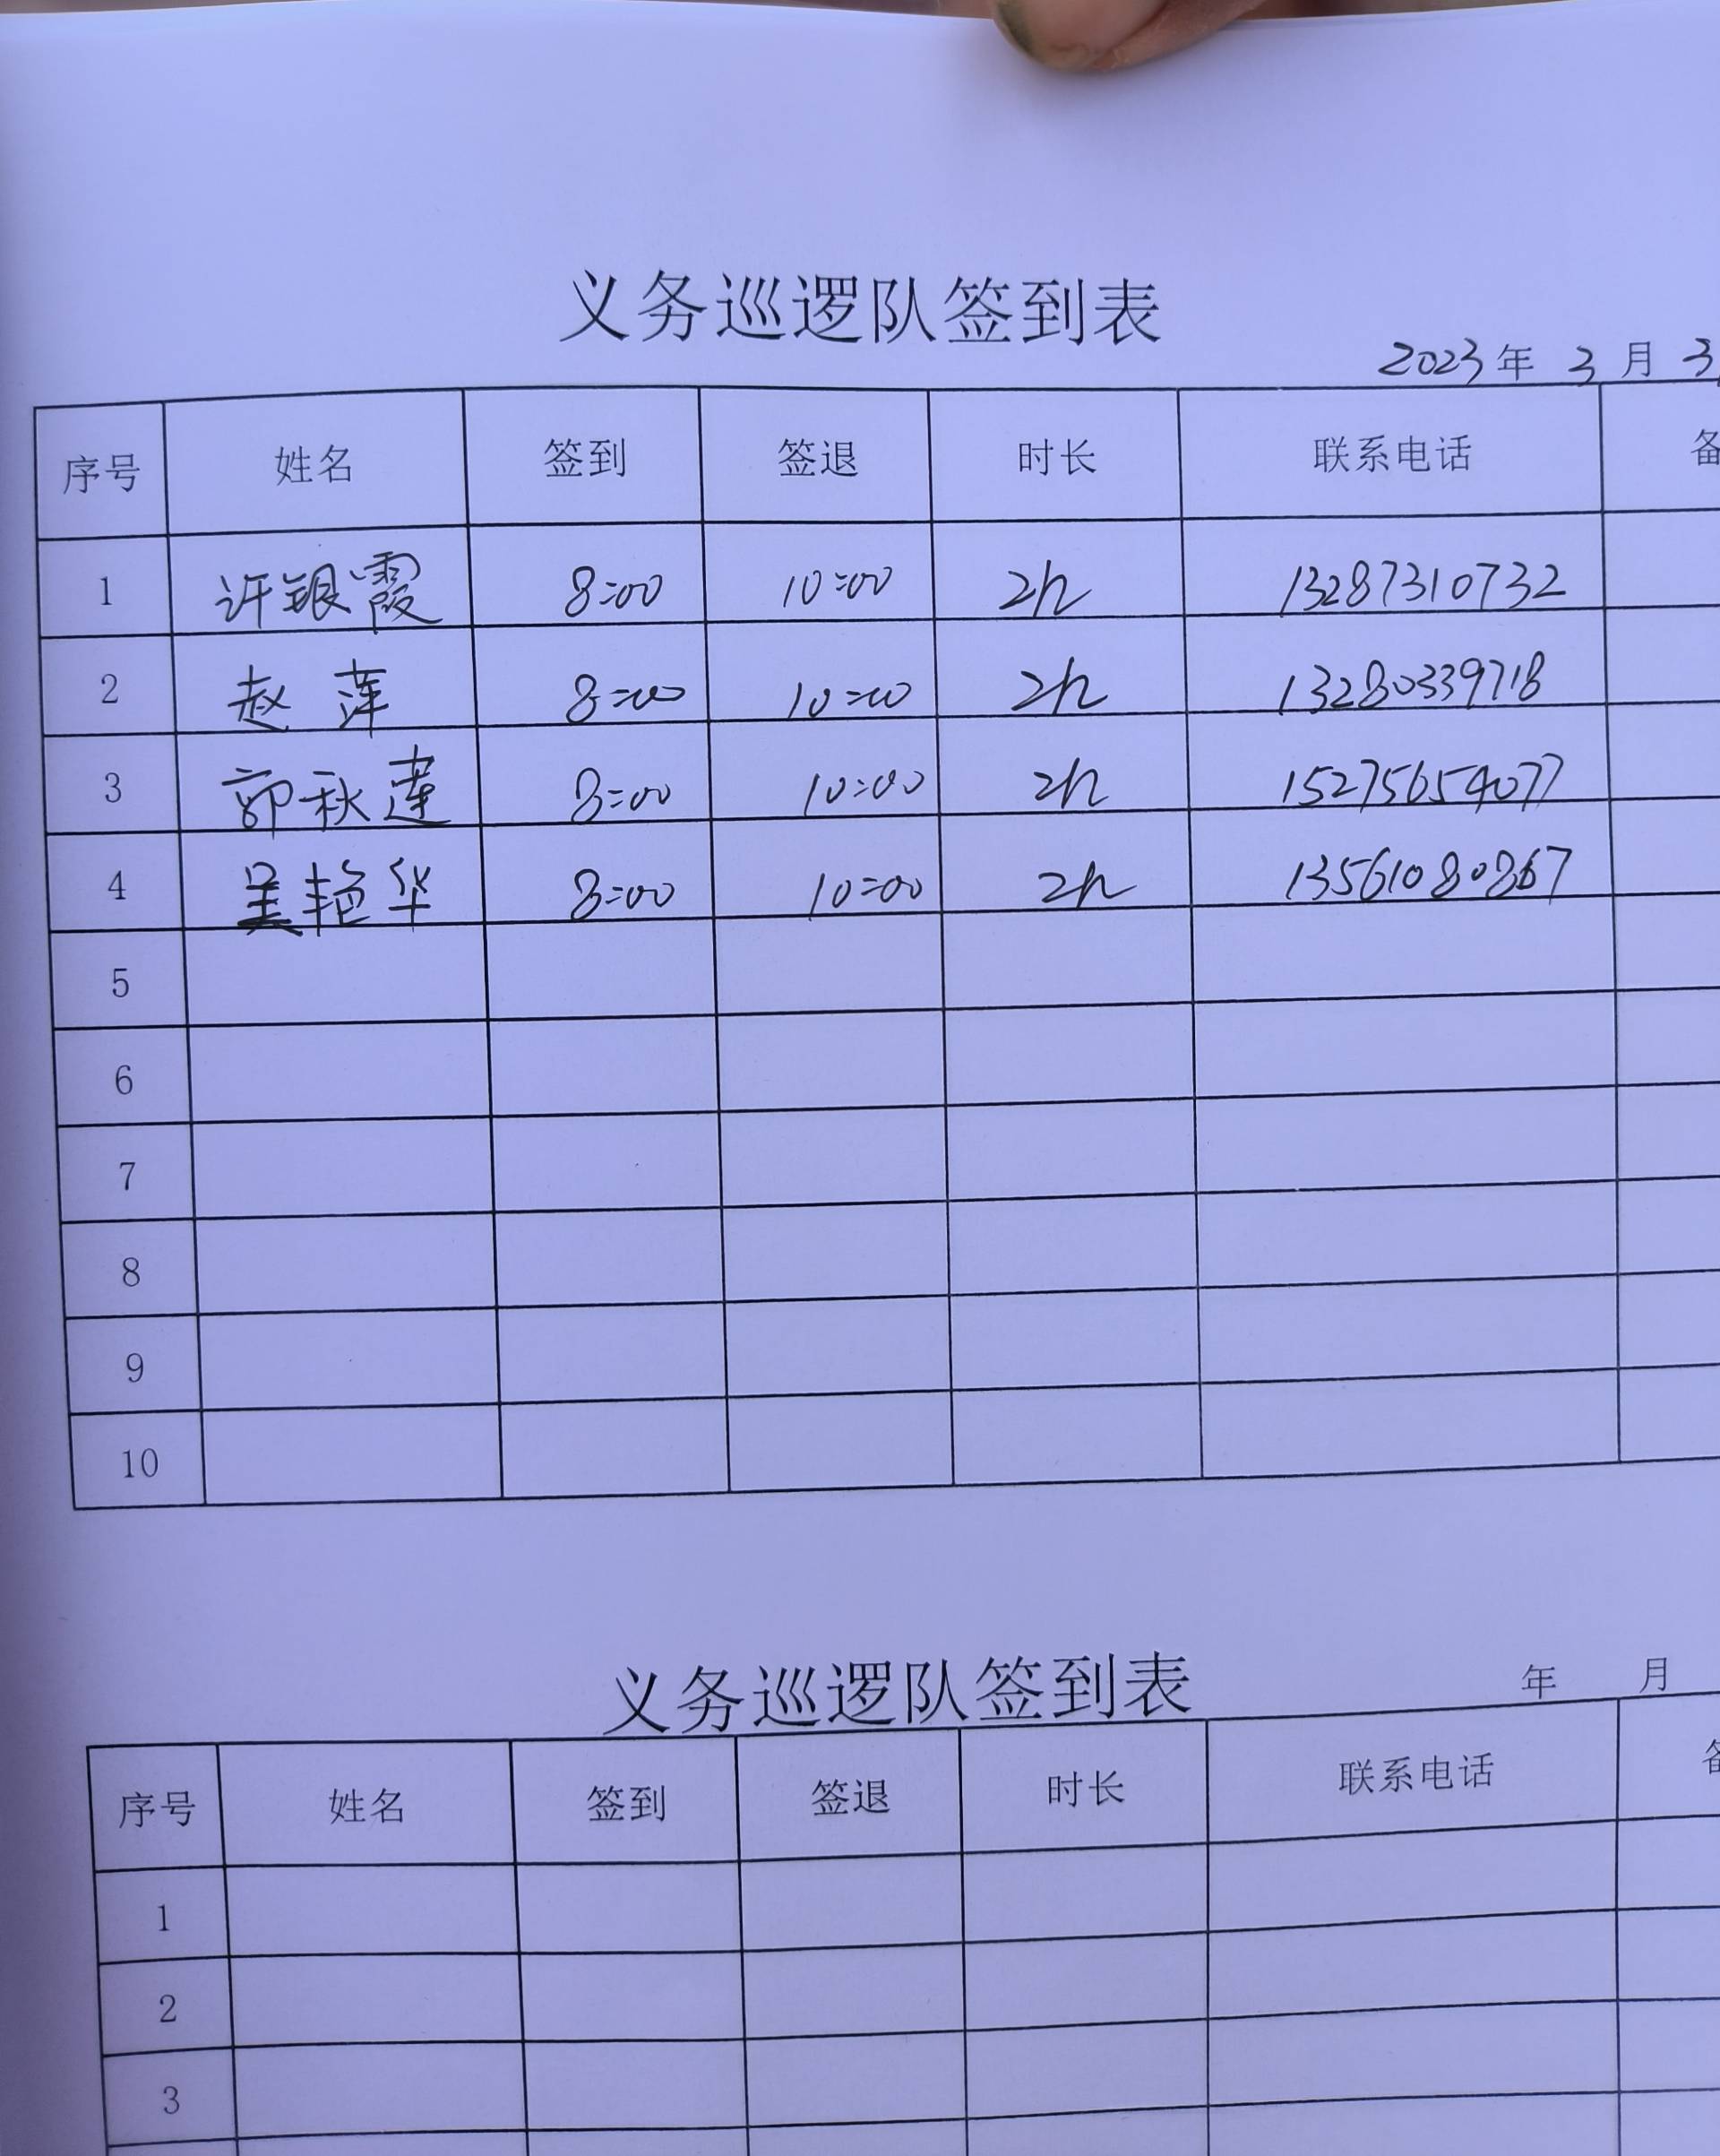 义务巡逻队签到表
2023年 3月 3
序号 姓名 签到 签退 时长 联系电话 备
1 许银霞 8:00 10:00 2h 13287310732
2 赵萍 8:00 10:00 2h 13280339718
3 郭秋莲 8:00 10:00 2h 15275654077
4 吴艳华 8:00 10:00 2h 13561080867
5
6
7
8
9
10
义务巡逻队签到表
年 月
序号 姓名 签到 签退 时长 联系电话 备
1
2
3